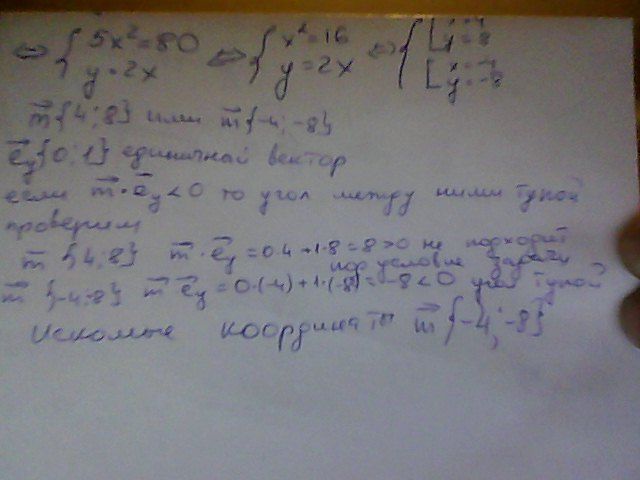 ⇔ { 5x²=80 ⇔ { x²=16 ⇔ { [ x=4 y=8
y=2x y=2x [ x=-4 y=-8
m⃗{4;8} или m⃗{-4;-8}
e⃗y{0;1} единичный вектор
если m⃗·e⃗y<0 то угол между ними тупой
проверим
m⃗ {4;8} m⃗·e⃗y=0·4+1·8=8>0 не подходит
под условие задачи
m⃗ {-4;-8} m⃗ e⃗y=0·(-4)+1·(-8)=-8<0 угол тупой
Искомые координаты m⃗{-4;-8}